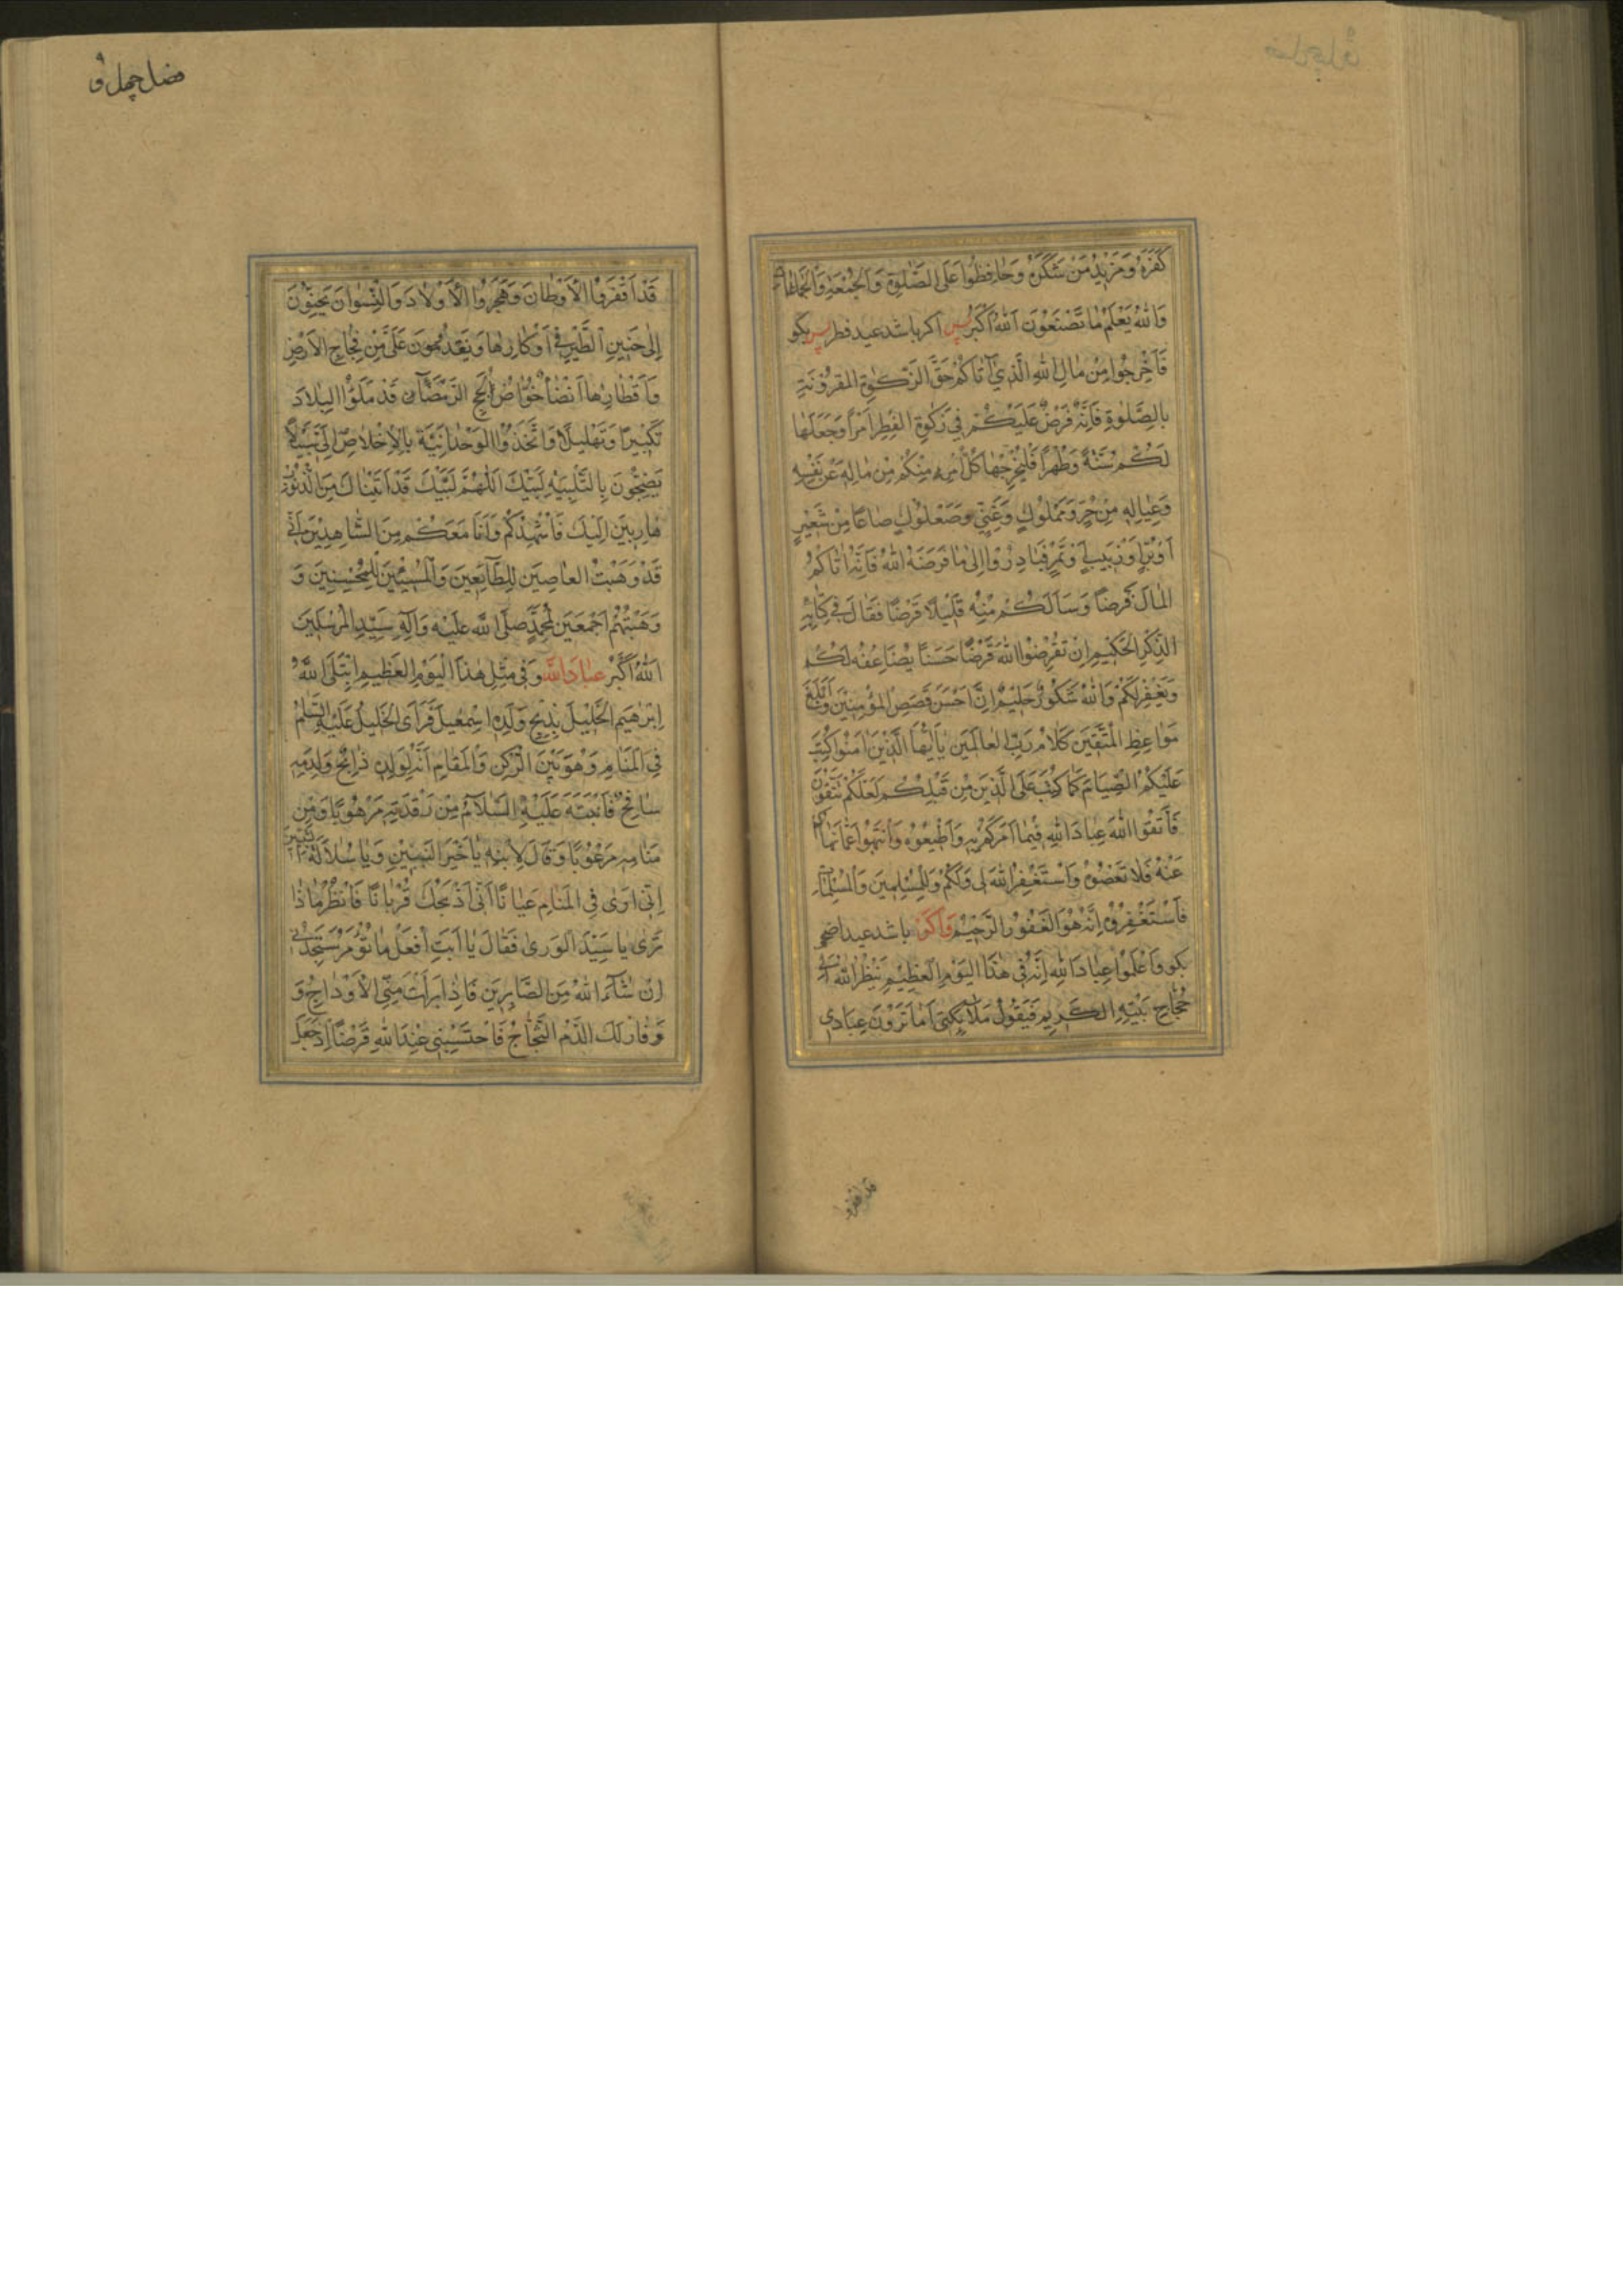 كَفَرَهُ وَمَزِيدُ مَنْ شَكَرَهُ وَحَافِظُوا عَلَى الصَّلٰوةِ وَالْجُمْعَةِ وَالْجَمَاعَاتِ
وَاللّٰهُ يَعْلَمُ مَا تَصْنَعُونَ اَللّٰهُ اَكْبَرُ پس اگر باشد عید فطر پس بکو
فَاَخْرِجُوا مِنْ مَالِ اللّٰهِ الَّذِي آتَاكُمْ حَقَّ الزَّكٰوةِ الْمَقْرُونَةِ
بِالصَّلٰوةِ فَاِنَّهُ فَرْضٌ عَلَيْكُمْ فِي زَكٰوةِ الْفِطْرِ اَمْرًا وَجَعَلَهَا
لَكُمْ سُنَّةً وَطُهْرًا فَلْيُخْرِجْهَا كُلُّ امْرِءٍ مِنْكُمْ مِنْ مَالِهِ عَنْ نَفْسِهِ
وَعِيَالِهِ مِنْ حُرٍّ وَمَمْلُوكٍ وَغَنِيٍّ وَصُعْلُوكٍ صَاعًا مِنْ شَعِيرٍ
اَوْ بُرٍّ اَوْ زَبِيبٍ اَوْ تَمْرٍ فَبَادِرُوا اِلٰى مَا فَرَضَهُ اللّٰهُ فَاِنَّهُ اَتَاكُمُ
الْمَالَ قَرْضًا وَسَاَلَكُمْ مِنْهُ قَلِيلًا قَرْضًا فَقَالَ فِي كِتَابِهِ
الذِّكْرِ الْحَكِيمِ اِنْ تُقْرِضُوا اللّٰهَ قَرْضًا حَسَنًا يُضَاعِفْهُ لَكُمْ
وَيَغْفِرْ لَكُمْ وَاللّٰهُ شَكُورٌ حَلِيمٌ اِنَّ اَحْسَنَ قَصَصِ الْمُؤْمِنِينَ وَاَبْلَغَ
مَوَاعِظِ الْمُتَّقِينَ كَلَامُ رَبِّ الْعَالَمِينَ يَا اَيُّهَا الَّذِينَ اٰمَنُوا كُتِبَ
عَلَيْكُمُ الصِّيَامُ كَمَا كُتِبَ عَلَى الَّذِينَ مِنْ قَبْلِكُمْ لَعَلَّكُمْ تَتَّقُونَ
فَاتَّقُوا اللّٰهَ عِبَادَ اللّٰهِ فِيمَا اَمَرَكُمْ بِهِ وَاَطِيعُوهُ وَانْتَهُوا عَمَّا نَهَاكُمْ
عَنْهُ فَلَا تَعْصُوهُ وَاَسْتَغْفِرُ اللّٰهَ لِي وَلَكُمْ وَلِلْمُسْلِمِينَ وَالْمُسْلِمَاتِ
فَاسْتَغْفِرُوهُ اِنَّهُ هُوَ الْغَفُورُ الرَّحِيمُ وَاکر باشد عید اضحی
بکو وَاعْلَمُوا عِبَادَ اللّٰهِ اِنَّهُ فِي هٰذَا الْيَوْمِ الْعَظِيمِ يَنْظُرُ اللّٰهُ اِلٰى
حُجَّاجِ بَيْتِهِ الْكَرِيمِ فَيَقُولُ مَلَائِكَتِي اَمَا تَرَوْنَ عِبَادِي
قد اقفروا
قَدْ اَقْفَرُوا الْاَوْطَانَ وَهَجَرُوا الْاَوْلَادَ وَالنِّسْوَانَ يَحِنُّونَ
اِلٰى حَنِينِ الطَّيْرِ فِي اَوْكَارِهَا وَيَقْدُمُونَ عَلَىَّ مِنْ فِجَاجِ الْاَرْضِ
وَاَقْطَارِهَا قَدْ مَلَؤُا الْبِلَادَ
تَكْبِيرًا وَتَهْلِيلًا وَاتَّخَذُوا الْوَحْدَانِيَّةَ بِالْاِخْلَاصِ اِلَيَّ سَبِيلًا
يَضِجُّونَ بِالتَّلْبِيَةِ لَبَّيْكَ اَللّٰهُمَّ لَبَّيْكَ قَدْ اَتَيْنَاكَ مِنَ الذُّنُوبِ
هَارِبِينَ اِلَيْكَ فَاُشْهِدُكُمْ وَاَنَا مَعَكُمْ مِنَ الشَّاهِدِينَ اَنِّي
قَدْ وَهَبْتُ الْعَاصِينَ لِلطَّائِعِينَ وَالْمُسِيئِينَ لِلْمُحْسِنِينَ وَ
وَهَبْتُهُمْ اَجْمَعِينَ لِمُحَمَّدٍ صَلَّى اللّٰهُ عَلَيْهِ وَآلِهِ سَيِّدِ الْمُرْسَلِينَ
اَللّٰهُ اَكْبَرُ عِبَادَ اللّٰهِ وَفِي مِثْلِ هٰذَا الْيَوْمِ الْعَظِيمِ ابْتَلَى اللّٰهُ
اِبْرٰهِيمَ الْخَلِيلَ بِذِبْحِ وَلَدِهِ اِسْمٰعِيلَ فَرَاَى الْخَلِيلُ عَلَيْهِ السَّلَامُ
فِي الْمَنَامِ وَهُوَ بَيْنَ الرُّكْنِ وَالْمَقَامِ اَنَّهُ لِوَلَدِهِ ذَابِحٌ وَلِدَمِهِ
سَافِحٌ فَانْتَبَهَ عَلَيْهِ السَّلَامُ مِنْ رَقْدَتِهِ مَرْهُوبًا وَمِنْ
مَنَامِهِ مَرْعُوبًا وَقَالَ لِابْنِهِ يَا خَيْرَ الْبَنِينَ وَيَا سُلَالَةَ
اِنِّي اَرٰى فِي الْمَنَامِ عَيَانًا اَنِّي اَذْبَحُكَ قُرْبَانًا فَانْظُرْ مَاذَا
تَرٰى يَا سَيِّدَ الْوَرٰى فَقَالَ يَا اَبَتِ افْعَلْ مَا تُؤْمَرُ سَتَجِدُنِي
اِنْ شَاءَ اللّٰهُ مِنَ الصَّابِرِينَ فَاِذَا بَرَاَتْ مِنِّي الْاَوْدَاجُ وَ
وَفَارَ لَكَ الدَّمُ الثَّجَّاجُ فَاحْتَسِبْنِي عِنْدَ اللّٰهِ قَرْضًا اِذْ جَعَلَ